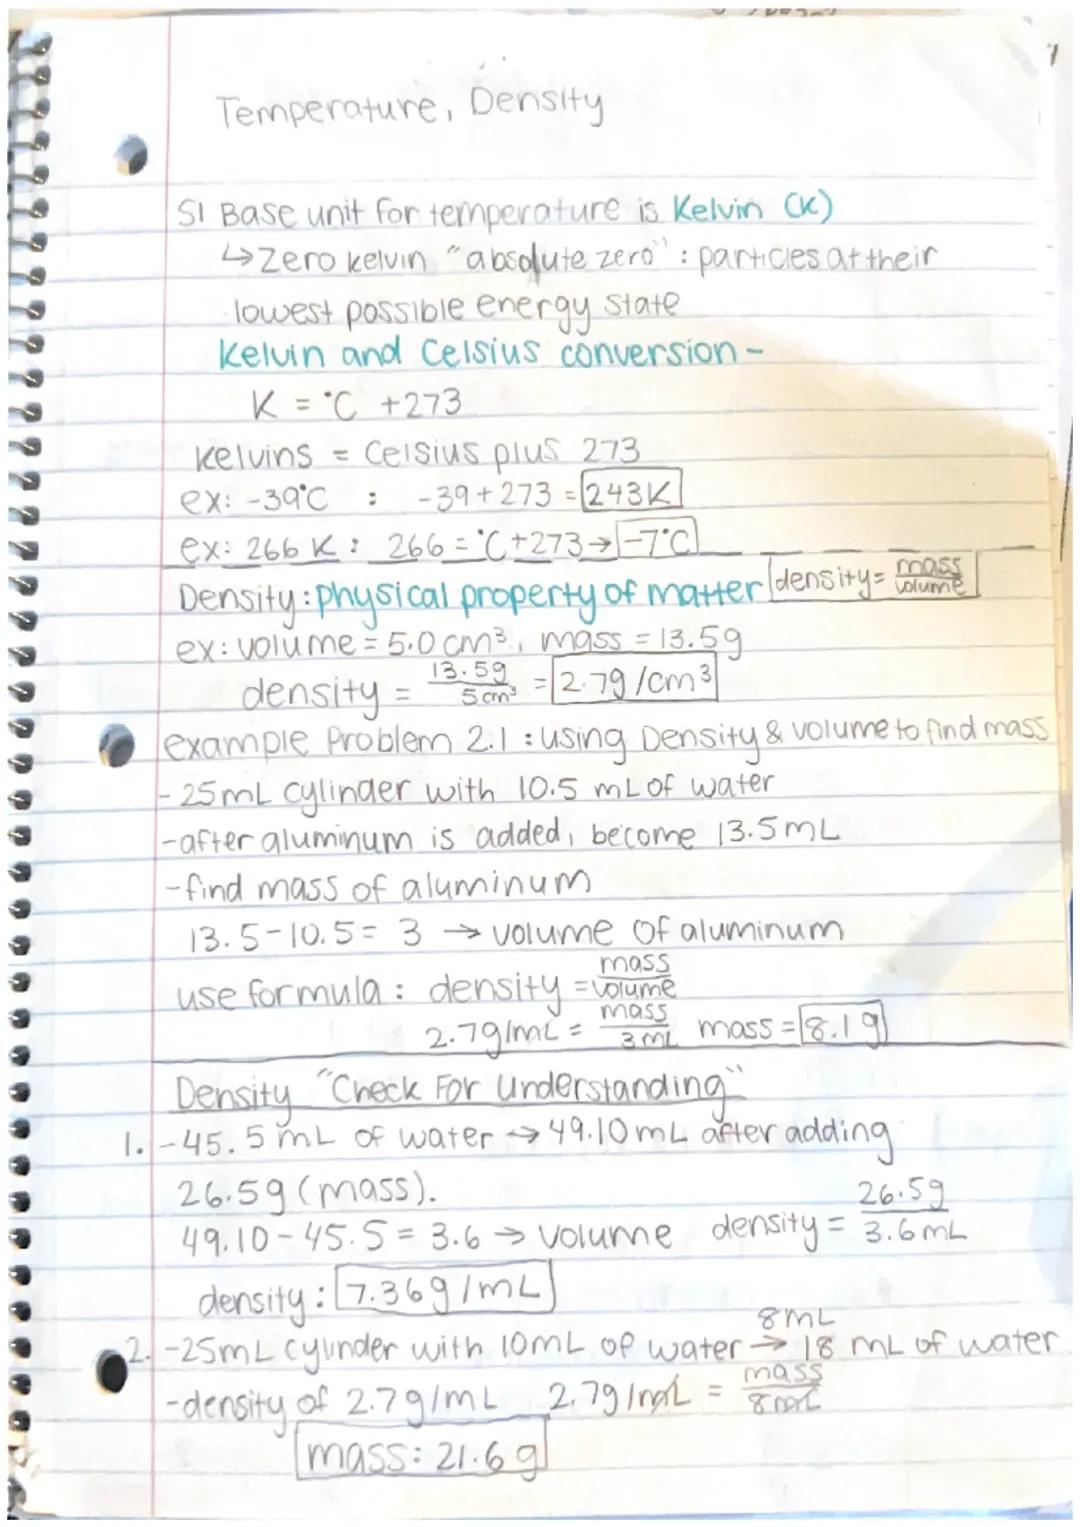 Temperature, Density
SI Base unit for temperature is Kelvin (K)
↳ Zero kelvin "absolute zero" : particles at their
lowest possible energy state
Kelvin and Celsius conversion -
K = °C + 273
Kelvins = Celsius plus 273
ex: -39°C : -39 + 273 = 243K
ex: 266 K : 266 = °C + 273 → -7°C
Density: physical property of matter density = mass/volume
ex: volume = 5.0 cm³, mass = 13.5g
density = 13.5g/5cm³ = 2.7g/cm³
example Problem 2.1 : using Density & volume to find mass
- 25mL cylinder with 10.5 mL of water
- after aluminum is added, become 13.5mL
- find mass of aluminum
13.5 - 10.5 = 3 → volume of aluminum
use formula : density = mass/volume
2.7g/mL = mass/3mL mass = 8.1g
Density "Check For Understanding"
1. - 45.5 mL of water → 49.10 mL after adding
26.5g (mass).
49.10 - 45.5 = 3.6 → volume density = 26.5g/3.6mL
density : 7.36g/mL
8mL
2. - 25mL cylinder with 10mL of water → 18 mL of water
- density of 2.7g/mL 2.7g/mL = mass/8mL
mass: 21.6g